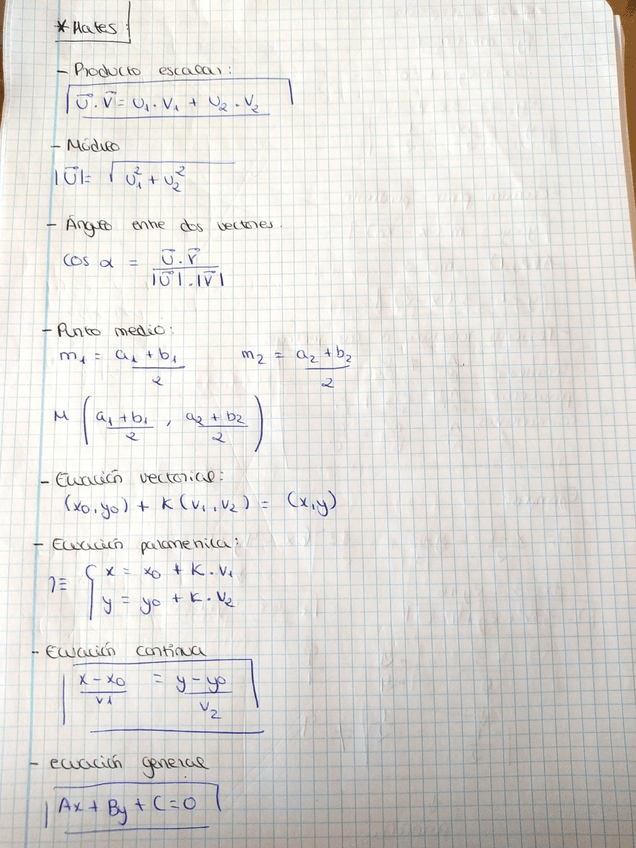 * Mates:
- Producto escalar:
u⃗ · v⃗ = u₁ · v₁ + u₂ · v₂
- Módulo
|u⃗| = √(u₁² + u₂²)
- Ángulo entre dos vectores.
cos α = (u⃗ · v⃗) / (|u⃗| · |v⃗|)
- Punto medio:
m₁ = (a₁ + b₁)/2    m₂ = (a₂ + b₂)/2
M ( (a₁ + b₁)/2 , (a₂ + b₂)/2 )
- Ecuación vectorial:
(x₀, y₀) + K (v₁, v₂) = (x, y)
- Ecuación paramenica:
r ≡ { x = x₀ + K · v₁
y = y₀ + K · v₂
- Ecuación continua
(x - x₀)/v₁ = (y - y₀)/v₂
- ecuación general
Ax + By + C = 0